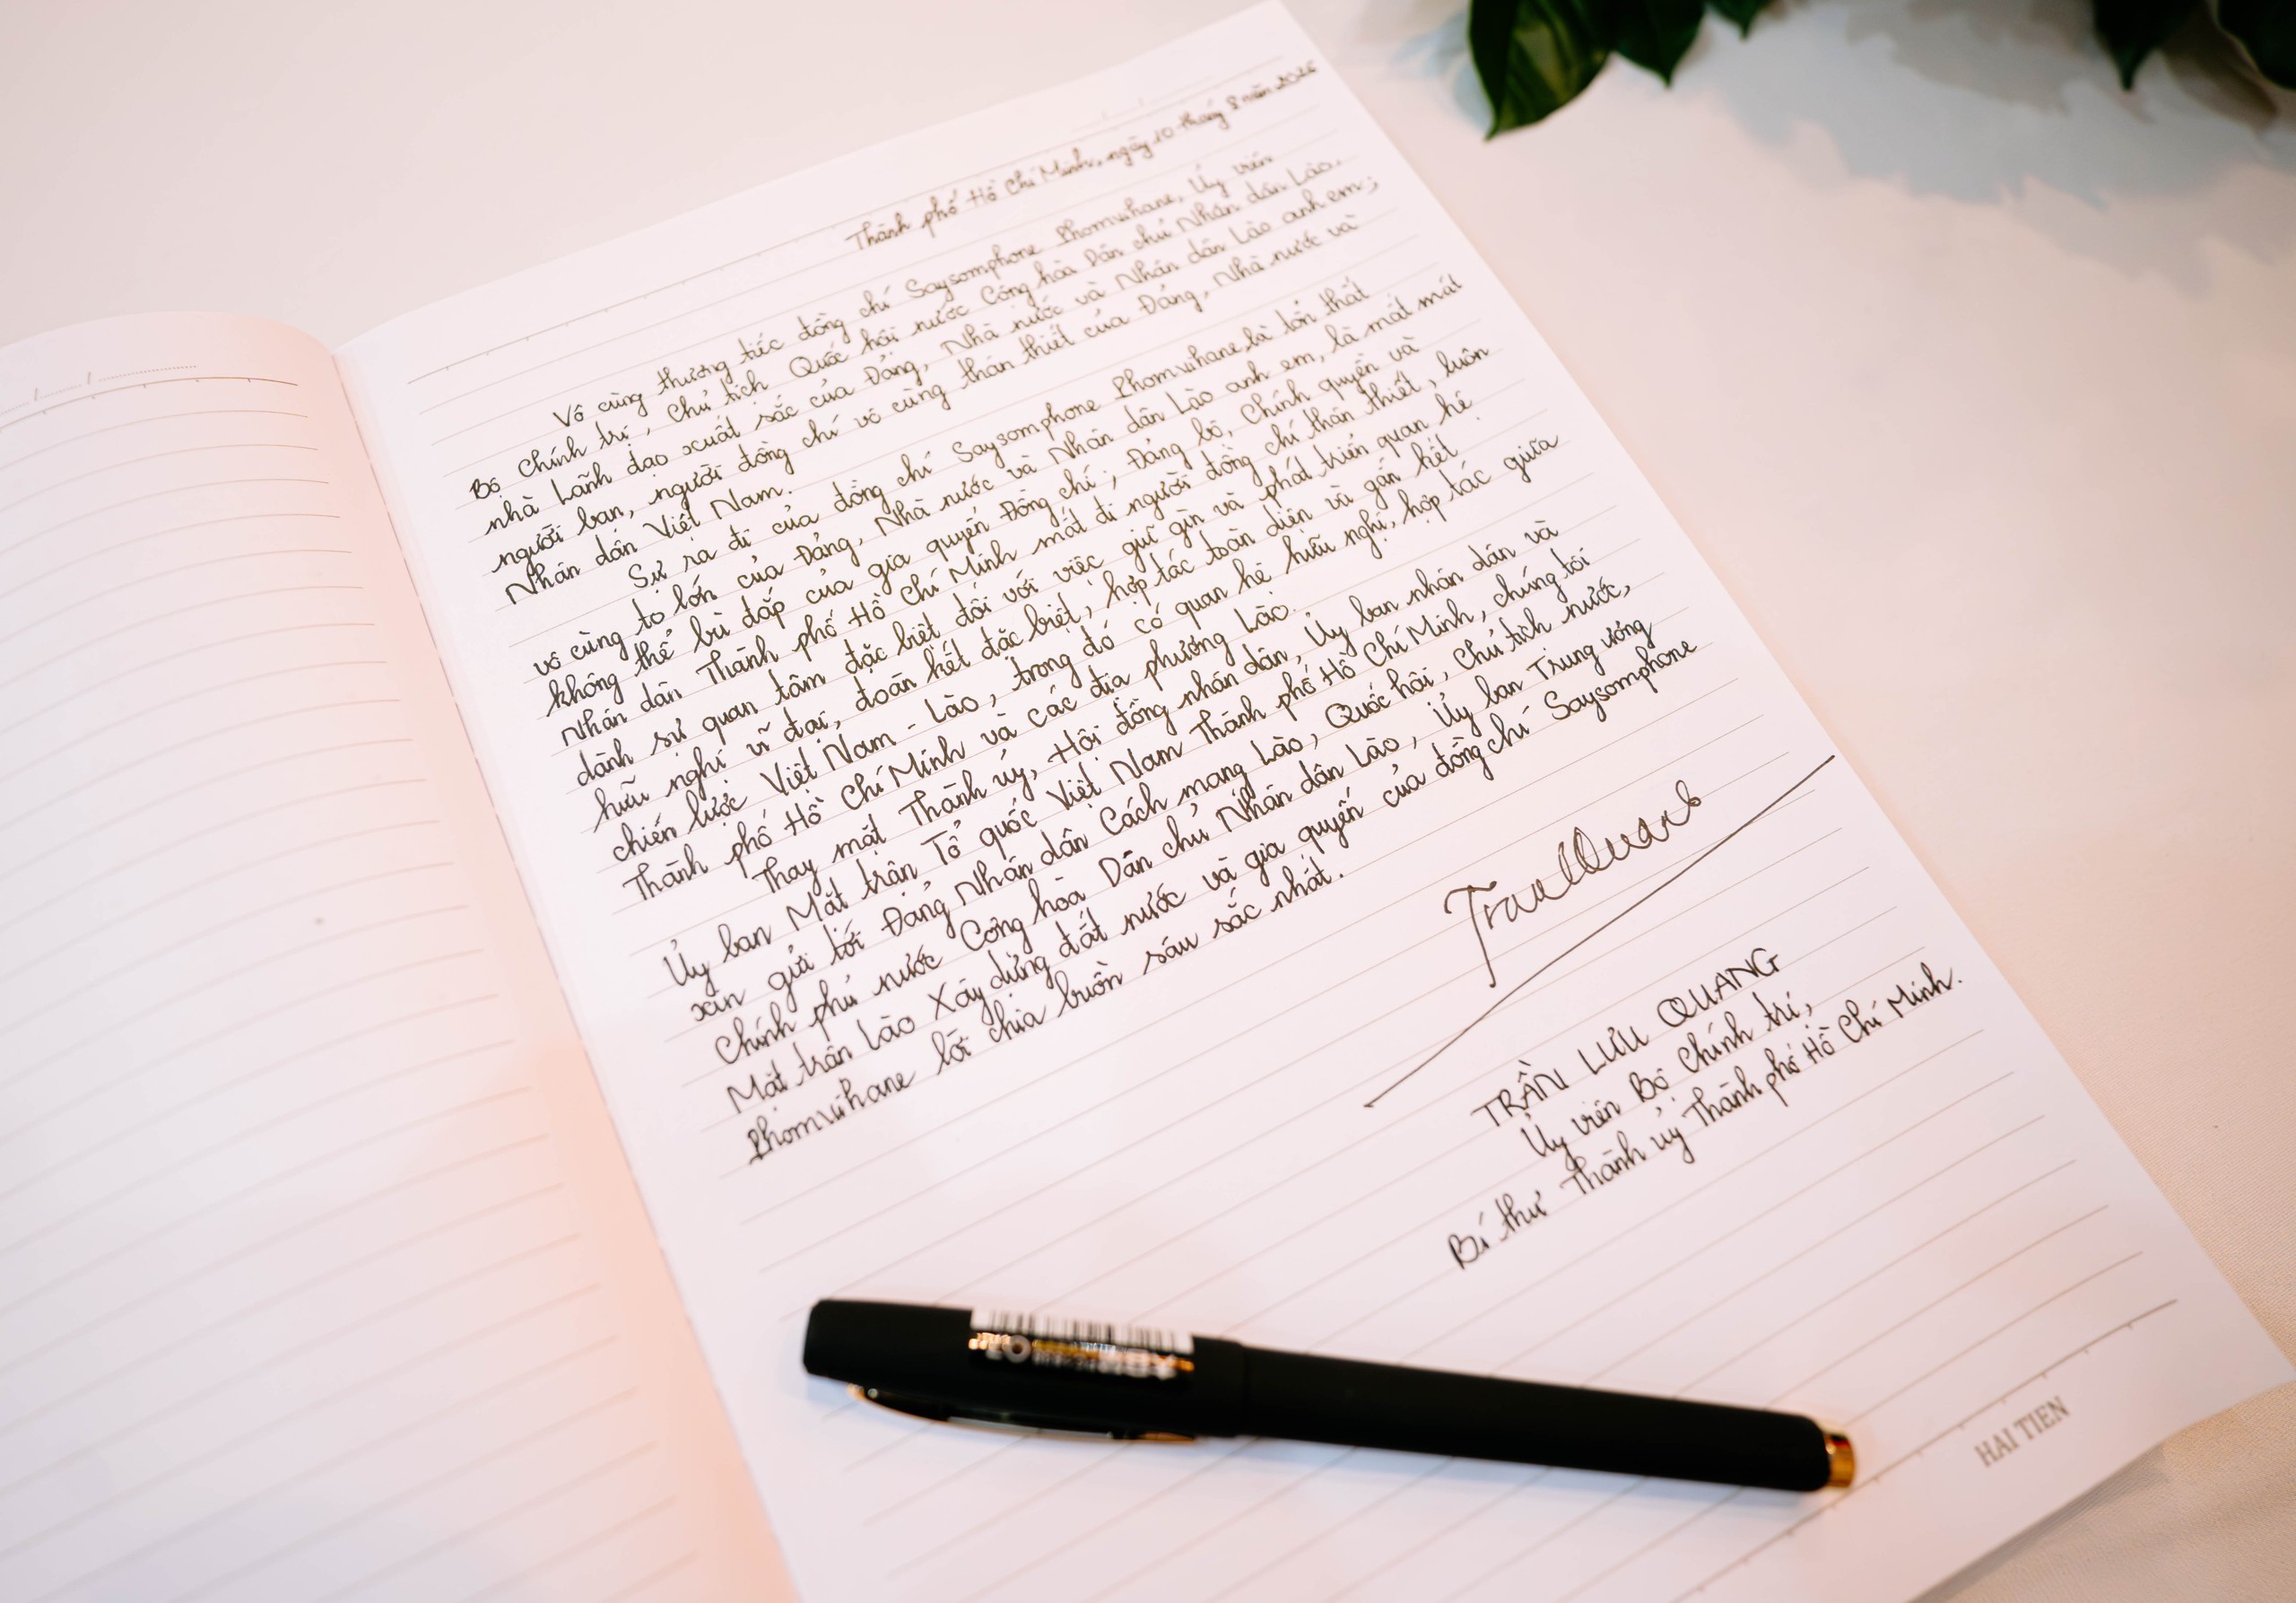 Thành phố Hồ Chí Minh, ngày 10 tháng 8 năm 2026
Vô cùng thương tiếc đồng chí Saysomphone Phomvihane, Ủy viên
Bộ Chính trị, Chủ tịch Quốc hội nước Cộng hòa Dân chủ Nhân dân Lào,
nhà Lãnh đạo xuất sắc của Đảng, Nhà nước và Nhân dân Lào anh em;
người bạn, người đồng chí vô cùng thân thiết của Đảng, Nhà nước và
Nhân dân Việt Nam.
Sự ra đi của đồng chí Saysomphone Phomvihane là tổn thất
vô cùng to lớn của Đảng, Nhà nước và Nhân dân Lào anh em, là mất mát
không thể bù đắp của gia quyến Đồng chí; Đảng bộ, Chính quyền và
Nhân dân Thành phố Hồ Chí Minh mất đi người đồng chí thân thiết, luôn
dành sự quan tâm đặc biệt đối với việc giữ gìn và phát triển quan hệ
hữu nghị vĩ đại, đoàn kết đặc biệt, hợp tác toàn diện và gắn kết
chiến lược Việt Nam - Lào, trong đó có quan hệ hữu nghị, hợp tác giữa
Thành phố Hồ Chí Minh và các địa phương Lào.
Thay mặt Thành ủy, Hội đồng nhân dân, Ủy ban nhân dân và
Ủy ban Mặt trận Tổ quốc Việt Nam Thành phố Hồ Chí Minh, chúng tôi
xin gửi tới Đảng Nhân dân Cách mạng Lào, Quốc hội, Chủ tịch nước,
Chính phủ nước Cộng hòa Dân chủ Nhân dân Lào, Ủy ban Trung ương
Mặt trận Lào Xây dựng đất nước và gia quyến của đồng chí Saysomphone
Phomvihane lời chia buồn sâu sắc nhất.
TRẦN LƯU QUANG
Ủy viên Bộ Chính trị,
Bí thư Thành uỷ Thành phố Hồ Chí Minh.
HAI TIEN